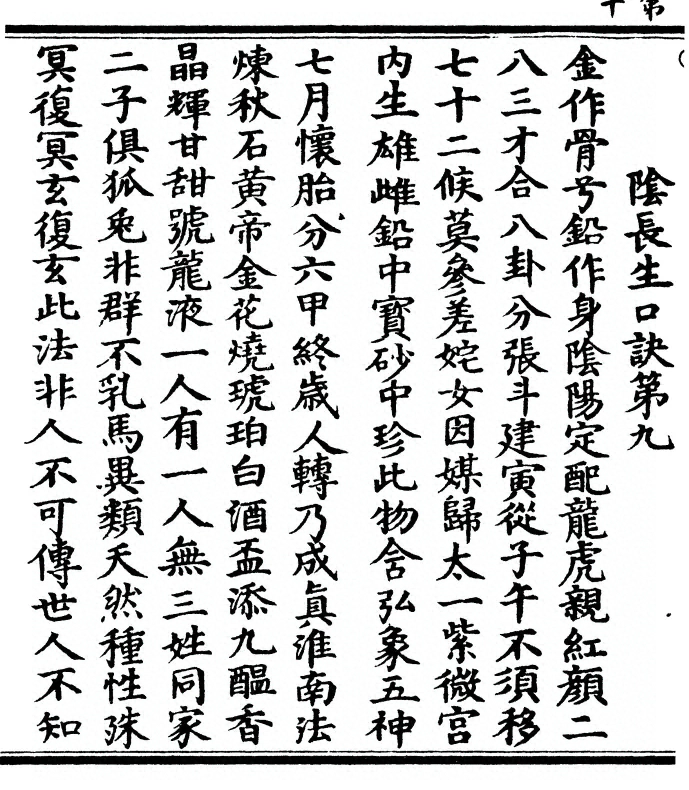 陰長生口訣第九
金作骨兮鉛作身陰陽定配龍虎親紅顏二
八三才合八卦分張斗建寅從子午不須移
七十二候莫參差姹女因媒歸太一紫微宮
內生雄雌鉛中寶砂中珍此物含弘象五神
七月懷胎分六甲終歲人轉乃成眞淮南法
煉秋石黃帝金花燒琥珀白酒盃添九醖香
晶輝甘甜號龍液一人有一人無三姓同家
二子俱狐兔非群不乳馬異類天然種性殊
冥復冥玄復玄此法非人不可傳世人不知